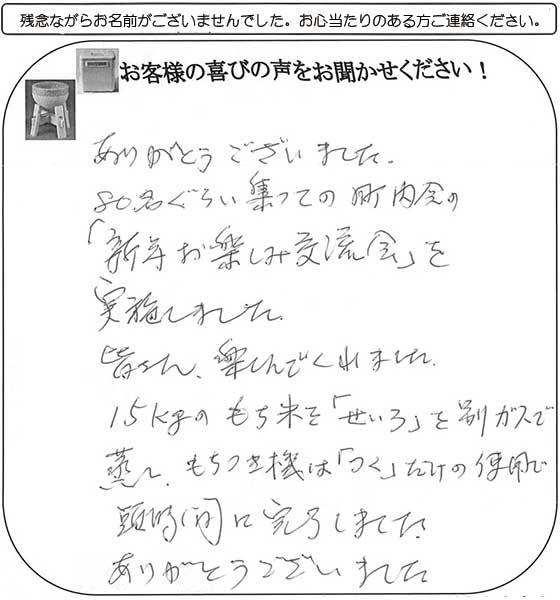 残念ながらお名前がございませんでした。お心当たりのある方ご連絡ください。
お客様の喜びの声をお聞かせください！
ありがとうございました.
80名ぐらい集っての町内会の
「新年お楽しみ交流会」を
実施しました.
皆さん、楽しんでくれました.
15kgのもち米を「せいろ」を別ガスで
蒸し、もちつき機は「つく」だけの使用で
時間に完了しました.
ありがとうございました